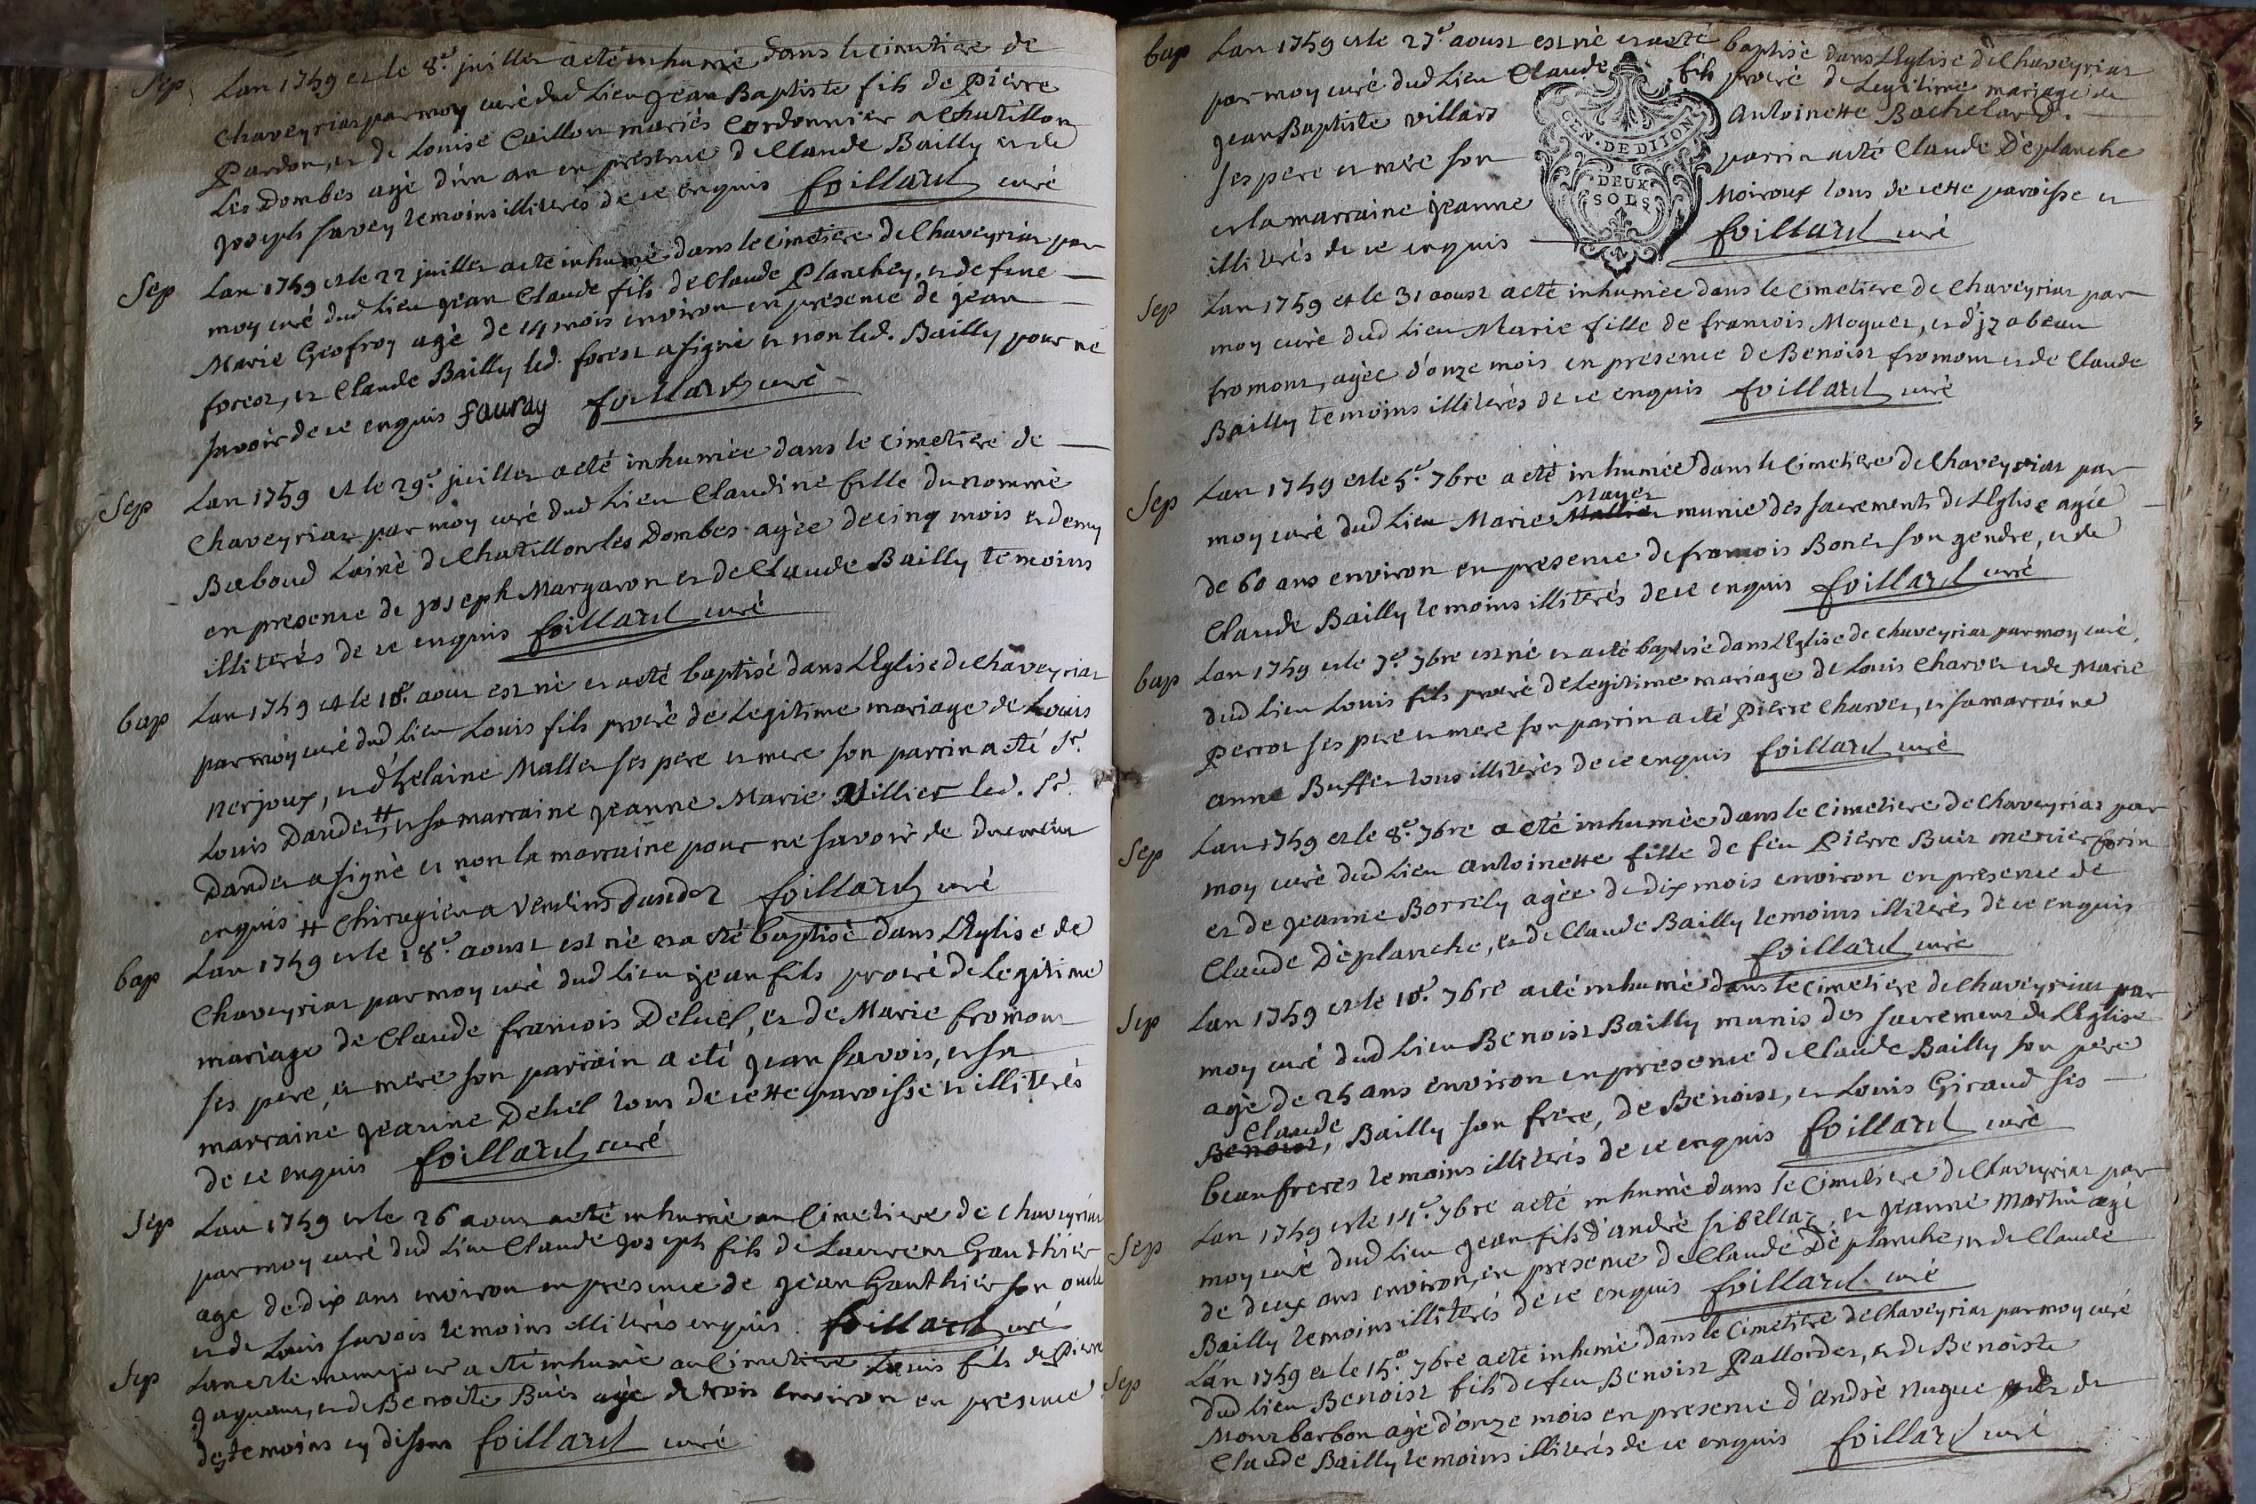 Sep Lan 1759 et le 8e. juillet a eté inhumé dans le cimetiere de
Chaveyriat par moy curé dud Lieu Jean Baptiste fils de Pierre
Pardon, et de Louise Caillon mariés Cordonnier a Chatillon
Les Dombes agé d'un an en presence de Claude Bailly et de
Joseph Savey temoins illiterés de ce enquis foillard curé
Sep Lan 1759 et le 22 juillet a eté inhumé dans le cimetiere de Chaveyriat par
moy curé dud Lieu Jean Claude fils de Claude Planchey, et de feue
Marie Geofroy agé de 14 mois environ en presence de jean
forest, et Claude Bailly led. forest a signé et non led. Bailly pour ne
savoir de ce enquis fauray foillard curé
Sep Lan 1759 et le 29e. juillet a eté inhumée dans le cimetiere de
Chaveyriat par moy curé dud Lieu Claudine fille du nommé
Baboud Lainé de Chatillon les Dombes agée de cinq mois et demy
en presence de Joseph Margaron et de Claude Bailly temoins
illiterés de ce enquis foillard curé
bap Lan 1759 et le 10e. aout est né et a eté baptisé dans L'Eglise de Chaveyriat
par moy curé dud Lieu Louis fils procré de Legitime mariage de Louis
nerjoux, et d'helaine Mallet ses pere et mere son parrin a eté Sr.
Louis Dandet, # et sa marraine Jeanne Marie Villier led. Sr.
Dandet a signé et non la marraine pour ne savoir de
enquis # chirugien a Vendins Dandet foillard curé
bap Lan 1759 et le 18e. aoust est né et a eté baptisé dans L'Eglise de
Chaveyriat par moy curé dud Lieu Jean fils procré de Legitime
mariage de Claude francois Deluel, et de Marie fromont
ses pere, et mere son parrain a eté Jean Savois, et sa
marraine Jeanne Deluel tous de cette paroisse et illiterés
de ce enquis foillard curé
Sep Lan 1759 et le 26 aout a eté inhumé au Cimetiere de Chaveyriat
par moy curé dud Lieu Claude Joseph fils de Laurent Gauthier
age de dix ans environ en presence de Jean Gauthier son oncle
et de Louis Savois temoins illiterés enquis foillard curé
Sep Lan et le meme jour a eté inhumé au Cimetiere Louis fils de Pierre
Jaquant, et de Benoite Buir agé de trois environ en presence
des temoins cy dessus foillard curé
bap Lan 1759 et le 27e. aoust est né et a eté baptisé dans L'Eglise de Chaveyriat
par moy curé dud Lieu Claude fils procré de Legitime mariage de
Jean Baptiste villars Antoinette Bachelard.
ses pere et mere son parrin a eté Claude Deplanche
et la marraine Jeanne Moiroux tous de cette paroisse et
illiterés de ce enquis foillard curé
GEN. DE DIJON
DEUX
SOLS
Sep Lan 1759 et le 31 aoust a eté inhumée dans le Cimetiere de Chaveyriat par
moy curé dud Lieu Marie fille de francois Moguet, et d'jzabeau
fromont, agée d'onze mois en presence de Benoist fromont et de Claude
Bailly temoins illiterés de ce enquis foillard curé
Sep Lan 1759 et le 5e. 7bre a eté inhumée dans le Cimetiere de Chaveyriat par
moy curé dud Lieu Marie Mayet munie des sacrements de L'Eglise agée
de 60 ans environ en presence de francois Bonet son gendre, et de
Claude Bailly temoins illiterés de ce enquis foillard curé
bap Lan 1759 et le 7e. 7bre est né et a eté baptisé dans L'Eglise de Chaveyriat par moy curé,
dud Lieu Louis fils procré de Legitime mariage de Louis Charvet et de Marie
Perrot ses pere et mere son parrin a eté Pierre Charvet, et sa marraine
anne Buffet tous illiterés de ce enquis foillard curé
Sep Lan 1759 et le 8e. 7bre a eté inhumée dans le Cimetiere de Chaveyriat par
moy curé dud Lieu Antoinette fille de feu Pierre Buir mercier forin
et de Jeanne Borrely agée de dix mois environ en presence de
Claude Deplanche, et de Claude Bailly temoins illiterés de ce enquis
foillard curé
Sep Lan 1759 et le 10e. 7bre a eté inhumé dans le Cimetiere de Chaveyriat par
moy curé dud Lieu Benoist Bailly munis des sacrement de L'Eglise
agé de 25 ans environ en presence de Claude Bailly son pere
Claude
Benoist, Bailly son frere, de Benoist, et Louis Giraud ses
beaufreres temoins illiterés de ce enquis foillard curé
Sep Lan 1759 et le 14e. 7bre a eté inhumé dans le Cimetiere de Chaveyriat par
moy curé dud Lieu Jean fils d'andré sibellat, et Jeanne Martin agé
de deux ans environ en presence de Claude Deplanche, et de Claude
Bailly temoins illiterés de ce enquis foillard curé
Sep L'an 1759 et le 15e. 7bre a eté inhumé dans le Cimetiere de Chaveyriat par moy curé
dud Lieu Benoist fils de feu Benoist Pallordet, et de Benoiste
Montbarbon agé d'onze mois en presence d'andré nugue et de
Claude Bailly temoins illiterés de ce enquis foillard curé